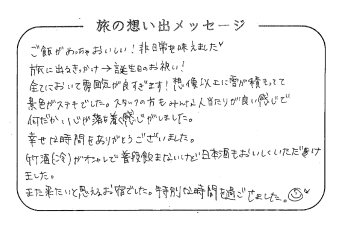 旅の想い出メッセージ
ご飯がめっちゃおいしい！非日常を味えました♡
旅に出るきっかけ→誕生日のお祝い！
全てにおいて雰囲気が良すぎます！想像以上に雪が積もってて
景色がステキでした。スタッフの方もみんな人当たりが良い感じで
何だか心が落ち着く感じがしました。
幸せな時間をありがとうございました。
竹酒(冷)がオシャレで普段飲まないけど日本酒もおいしくいただけ
ました。
また来たいと思えるお宿でした。特別な時間を過ごせました。